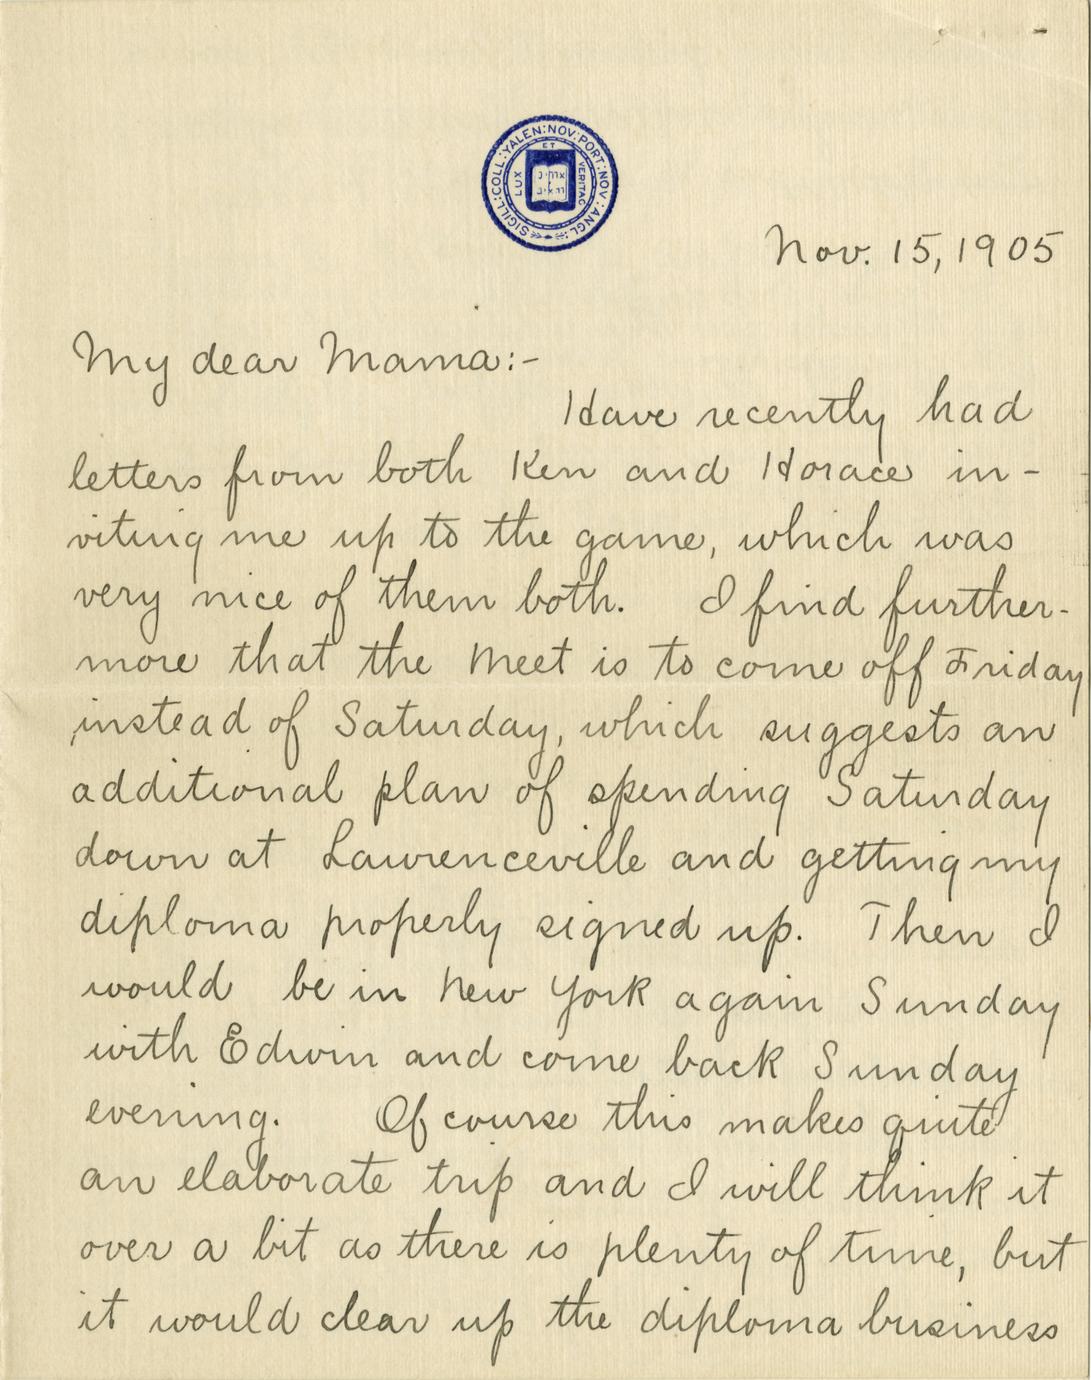 SIGILL:COLL:YALEN:NOV:PORT:NOV:ANGL:
LUX ET VERITAS
Nov. 15, 1905
My dear Mama:-
Have recently had
letters from both Ken and Horace in-
viting me up to the game, which was
very nice of them both. I find further-
more that the Meet is to come off Friday
instead of Saturday, which suggests an
additional plan of spending Saturday
down at Lawrenceville and getting my
diploma properly signed up. Then I
would be in New York again Sunday
with Edwin and come back Sunday
evening. Of course this makes quite
an elaborate trip and I will think it
over a bit as there is plenty of time, but
it would clear up the diploma business